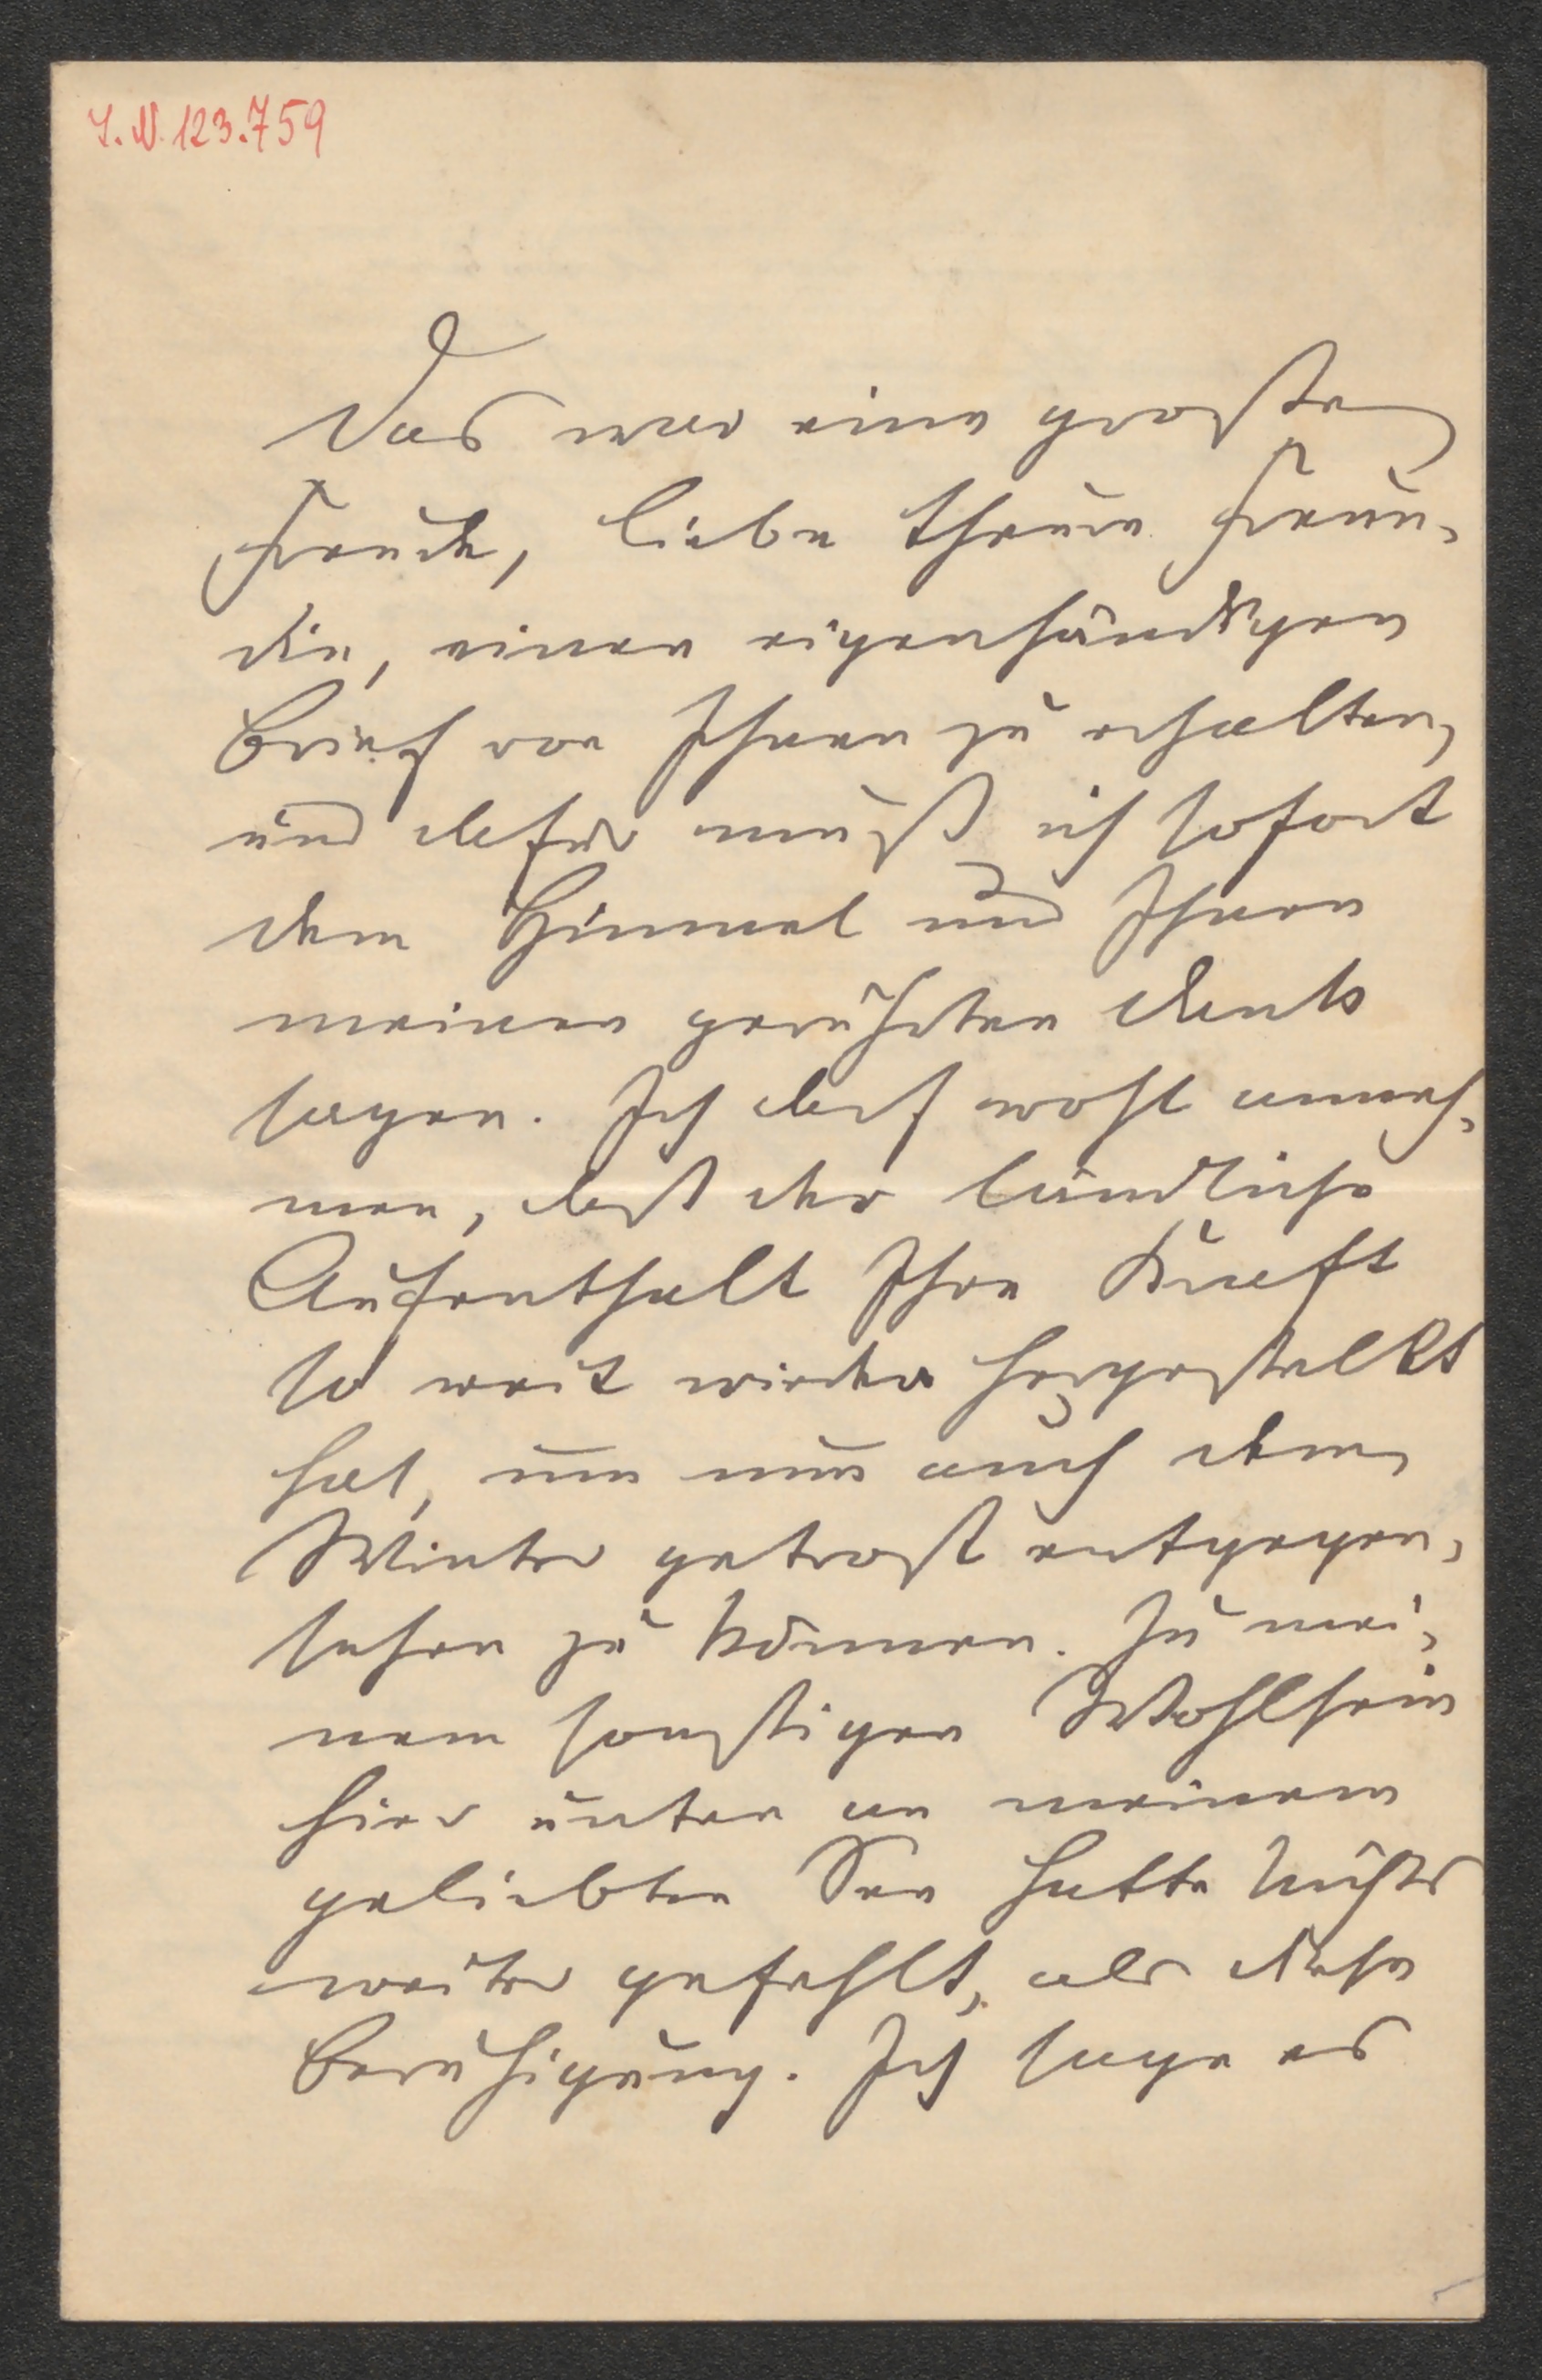 I. N. 123.759
Das war eine große
Freude, liebe theure Freun-
din, einen eigenhändigen
Brief von Ihnen zu erhalten,
und dafür muß ich sofort
dem Himmel und Ihnen
meinen gerührten Dank
sagen. Ich darf wohl anneh-
men, daß der ländliche
Aufenthalt Ihre Kraft
so weit wieder hergestellt
hat, um nun auch dem
Winter getrost entgegen-
sehen zu können. Zu mei-
nem sonstigen Wohlsein
hier unten an meinem
geliebten See hatte Nichts
weiter gefehlt, als diese
Beruhigung. Ich sage es